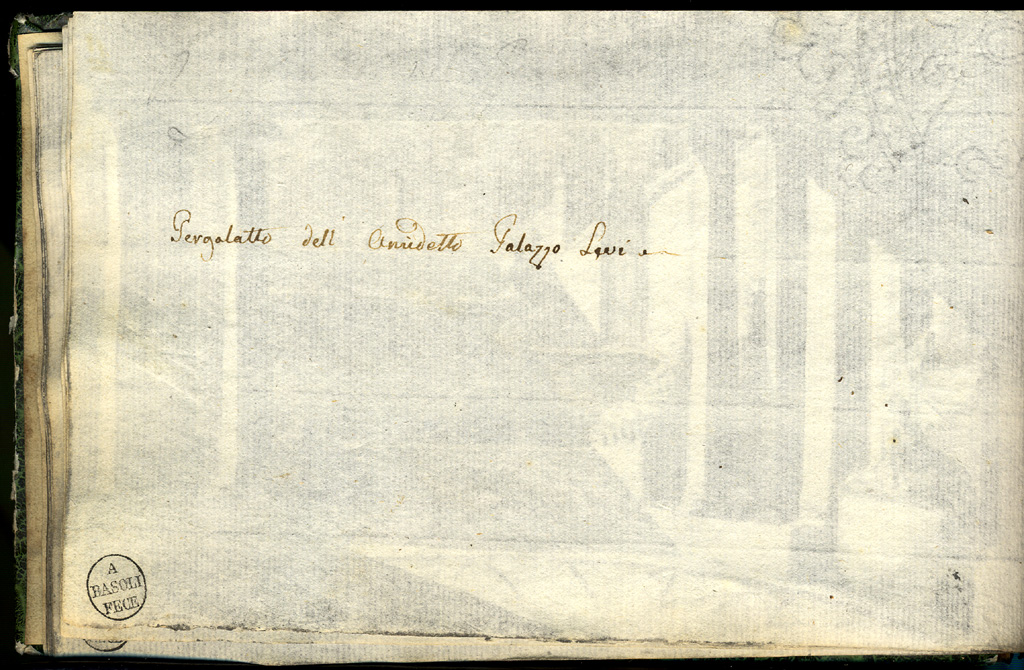 Pergolatto dell' Anndetto Palazzo Levi
A
BASOLI
FECE